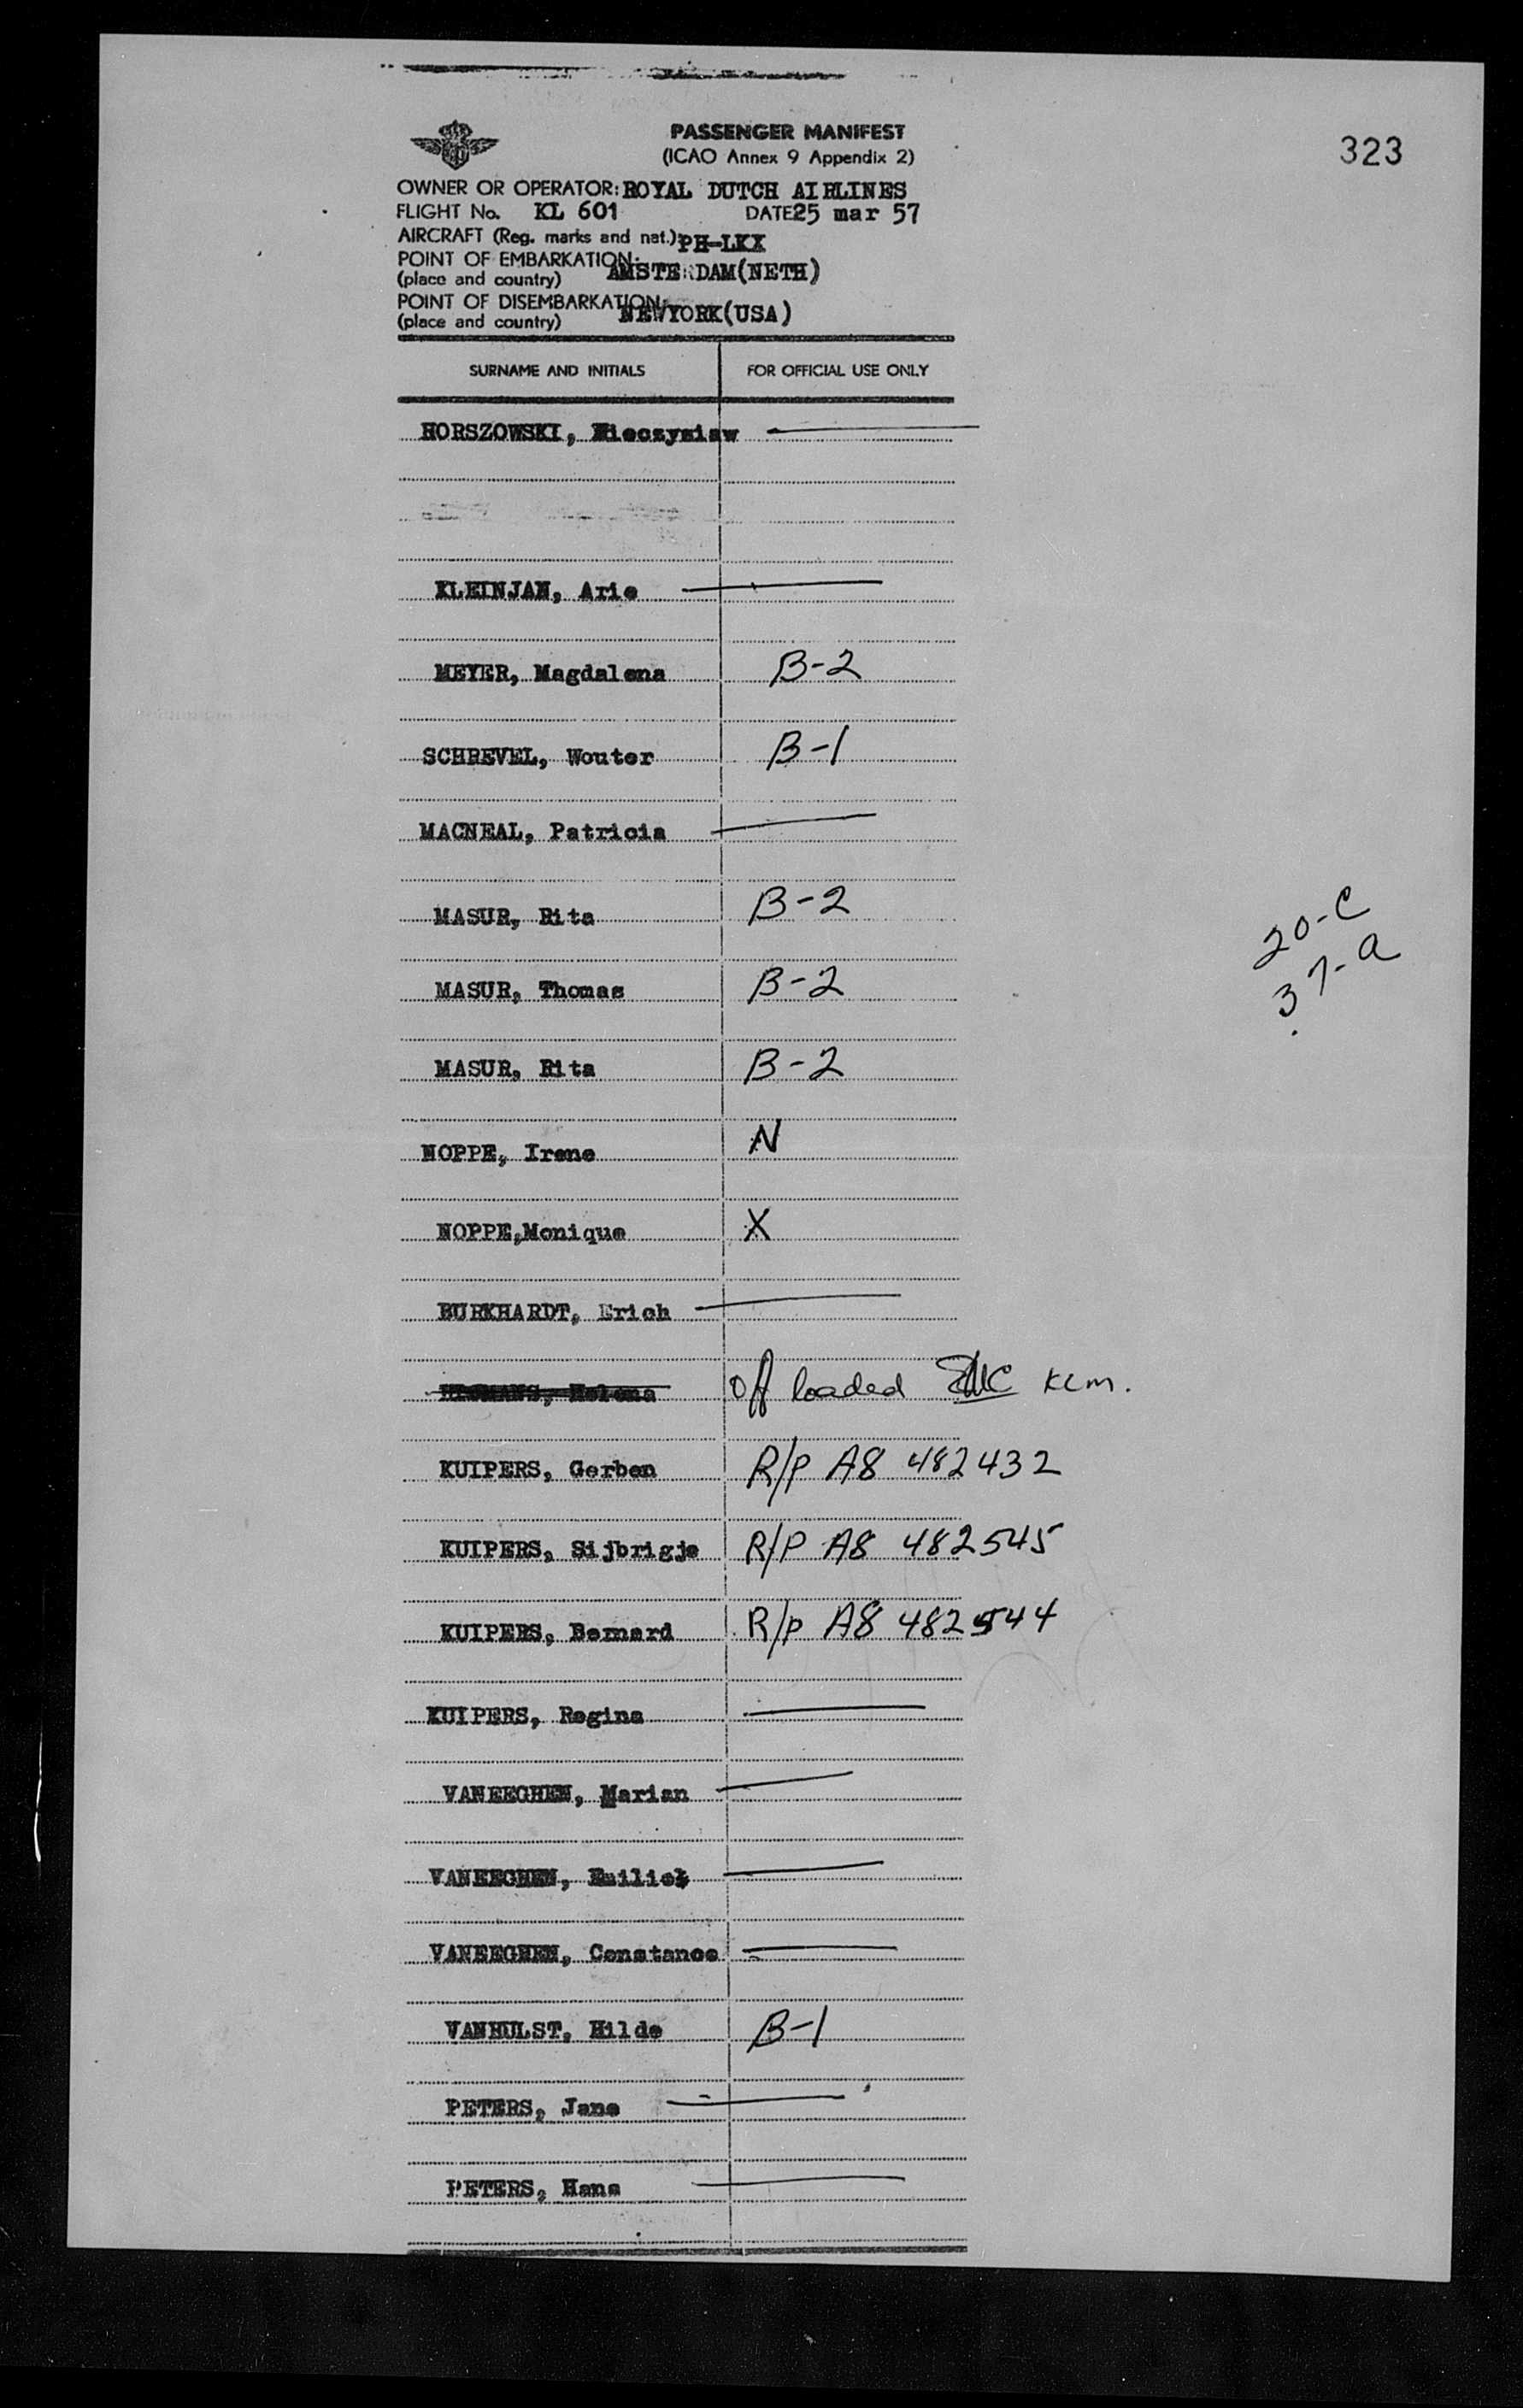 PASSENGER MANIFEST
(ICAO Annex 9 Appendix 2)
323
OWNER OR OPERATOR: ROYAL DUTCH AIRLINES
FLIGHT No. KL 601 DATE 25 mar 57
AIRCRAFT (Reg. marks and nat.): PH-LKX
POINT OF EMBARKATION: AMSTERDAM(NETH)
(place and country)
POINT OF DISEMBARKATION: NEWYORK(USA)
(place and country)
SURNAME AND INITIALS FOR OFFICIAL USE ONLY
HORSZOWSKI, Mieczyslaw
KLEINJAN, Arie
MEYER, Magdalena B-2
SCHREVEL, Wouter B-1
MACNEAL, Patricia
MASUR, Rita B-2
20-C
37-a
MASUR, Thomas B-2
MASUR, Rita B-2
NOPPE, Irene N
NOPPE,Monique X
BURKHARDT, Erich
Helena off loaded KLM.
KUIPERS, Gerben R/p A8 482432
KUIPERS, Sijbrigje R/P A8 482545
KUIPERS, Bernard R/p A8 482544
KUIPERS, Regina
VANEEGHEN, Marian
VANEEGHEN,
VANEEGHEN, Constance
VANHULST, Hilde B-1
PETERS, Jane
PETERS, Hans